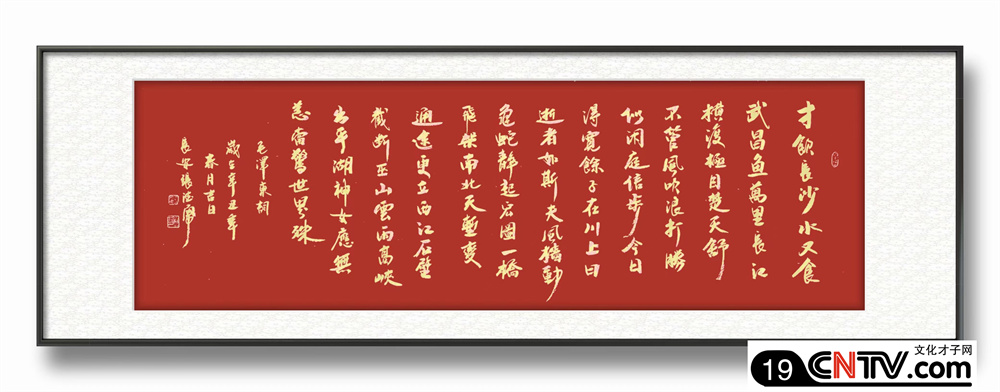 才饮長沙水又食
武昌鱼萬里長江
横渡極目楚天舒
不管風吹浪打勝
似闲庭信步今日
得寬餘子在川上曰
逝者如斯夫風樯動
龟蛇静起宏圖一橋
飛架南北天塹变
通途更立西江石壁
截断巫山雲雨高峡
出平湖神女應無
恙當驚世界殊
毛澤東詞
歲在辛丑年
春月吉日
長安張
文化才子网
19 CNTV.com